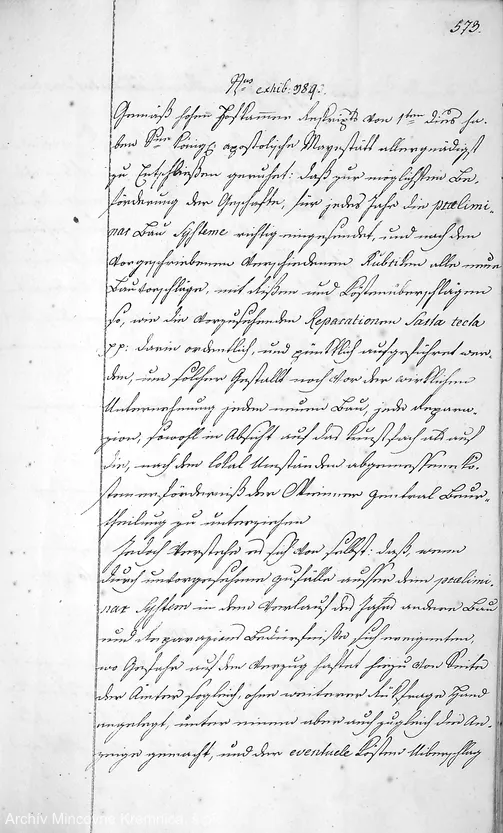 573.
Nus exhib: 984.
Gemäß hohen Hofkammer Reskripts von 1ten dies ha-
ben Seine königl: apostolische Mayestätt allergnädigst
zu Entschließen geruhet: daß zur möglichsten Be-
förderung der Geschäfte, für jedes Jahr die prælimi-
nar Bau Systeme richtig eingesendet, und nach den
vorgeschriebenen verschiedenen Rubriken alle neue
Bauvorschläge, mit Rißen und Kostenüberschlägen
so, wie die vorzusehenden Reparationen Sarta tecta
pp: darin ordentlich, und pünktlich aufgeführet wer-
den, um solcher Gestallt noch vor der wirklichen
Unternehmung jeden neuen Bau, jede Repara-
zion, sowohl in Absicht auf das Kunstfach als auf
die, nach den lokal Umständen abgemessene Ko-
stenerforderniß der Wiener zentral Beur-
theilung zu unterziehen
Jedoch verstehe es sich von selbst: daß, wenn
durch unvorgesehene Zufälle ausser dem prælimi-
nar System in dem Verlauf des Jahrs andere Bau
und Reparazions Bedürfniße sich ereigneten,
wo Gefahr auf dem Verzug haftet hiezu von Seite
der Ämter sogleich, ohne weiterer Rückfrage Hand
angelegt, unter einem aber auch zugleich die An-
zeige gemacht, und der eventuele Kosten Uiberschlag
Archív Mincovne Kremnica, š.p.